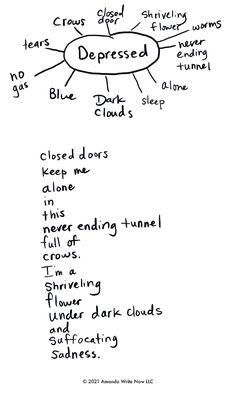 Crows
closed
door
Shriveling
flower
worms
tears
Depressed
never
ending
tunnel
no
gas
Blue
Dark
Clouds
sleep
alone
closed doors
Keep me
alone
in
this
never ending tunnel
full of
crows.
I'm a
Shriveling
flower
under dark clouds
and
suffocating
Sadness.
© 2021 Amanda Write Now LLC